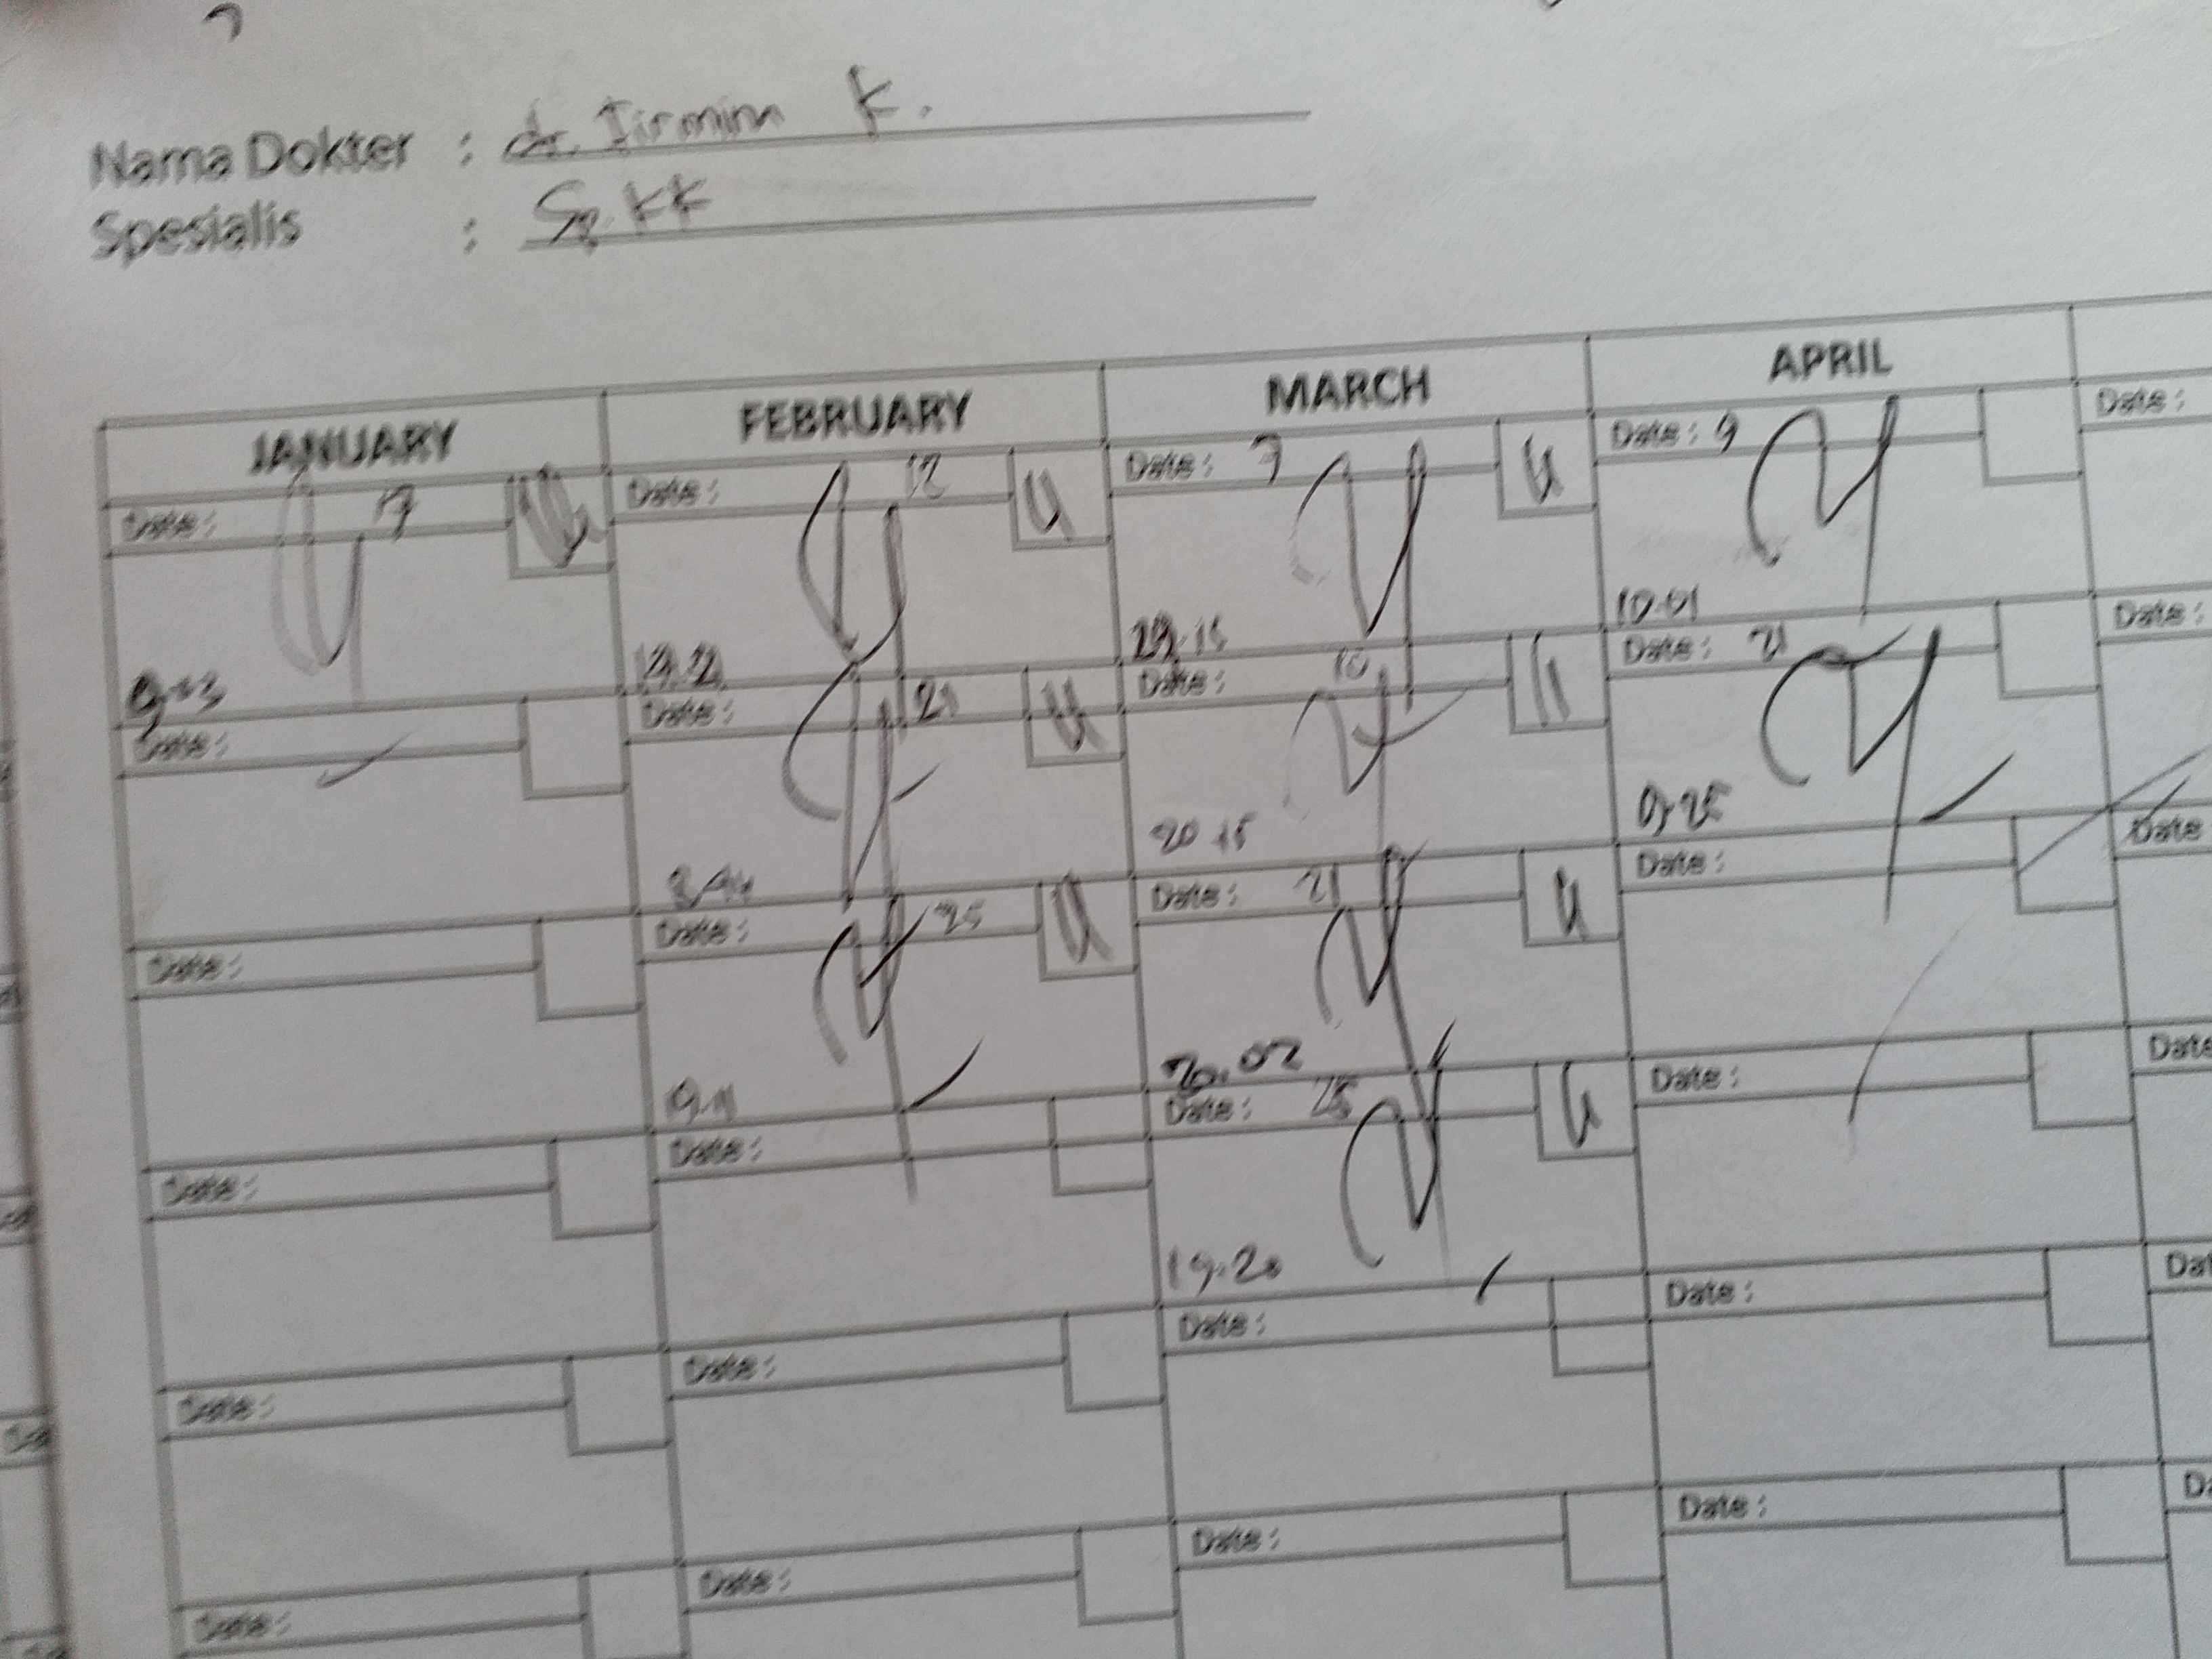 Nama Dokter : dr. Irmina K.
Spesialis : Sp.KK
JANUARY FEBRUARY MARCH APRIL
Date: 17 Date: 12 Date: 7 Date: 9 Date:
29.15 10.01
Date: Date: 21 Date: 10 Date: 21 Date:
20.15 9.25
Date: Date: 25 Date: 21 Date: Date
19.11 20.02
Date: Date: Date: 25 Date: Date
19.20
Date: Date: Date: Date: Dat
Date: Date: Date: Date: Da